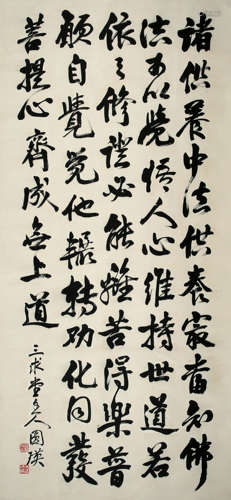 諸供養中法供養最當知佛
法可以覺悟人心維持世道若
依之修證必能離苦得樂普
願自覺覺他輾轉劝化同發
菩提心齊成無上道
三求堂主人圓瑛